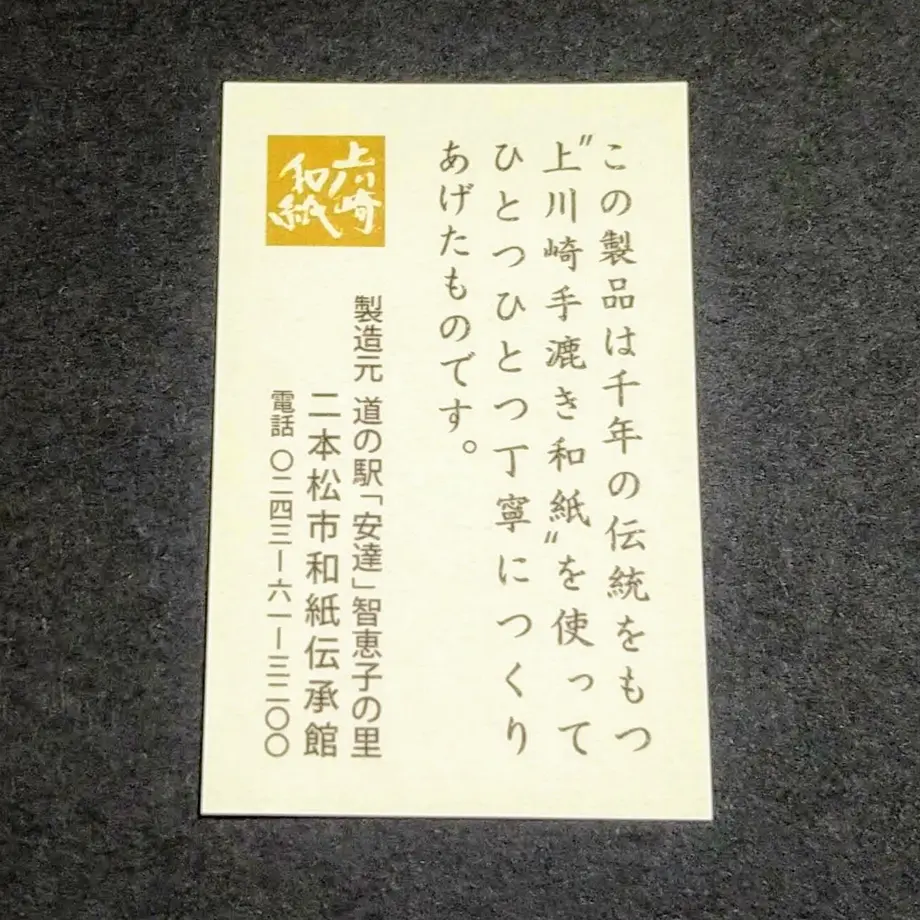 この製品は千年の伝統をもつ
"上川崎手漉き和紙"を使って
ひとつひとつ丁寧につくり
あげたものです。
上川崎
和紙
製造元 道の駅「安達」智恵子の里
二本松市和紙伝承館
電話 〇二四三ー六一ー三二〇〇